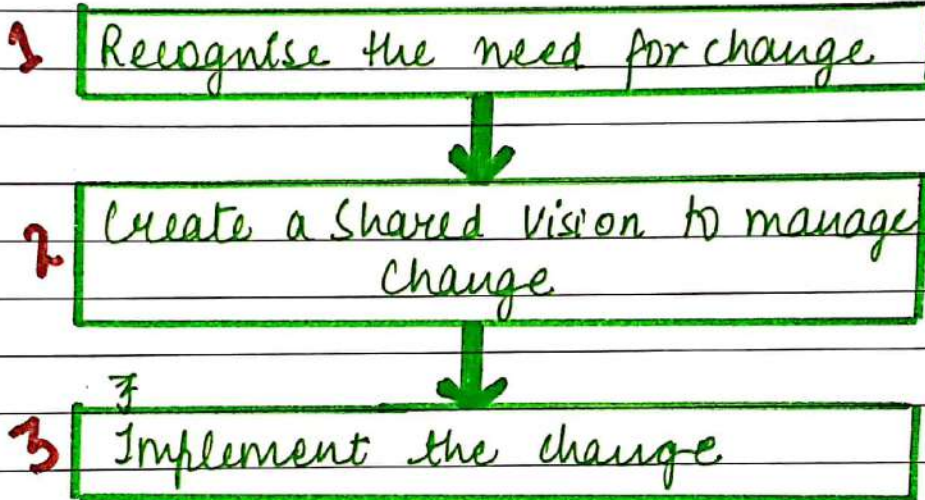 1 Recognise the need for change
2 Create a Shared Vision to manage
change
3 Implement the change